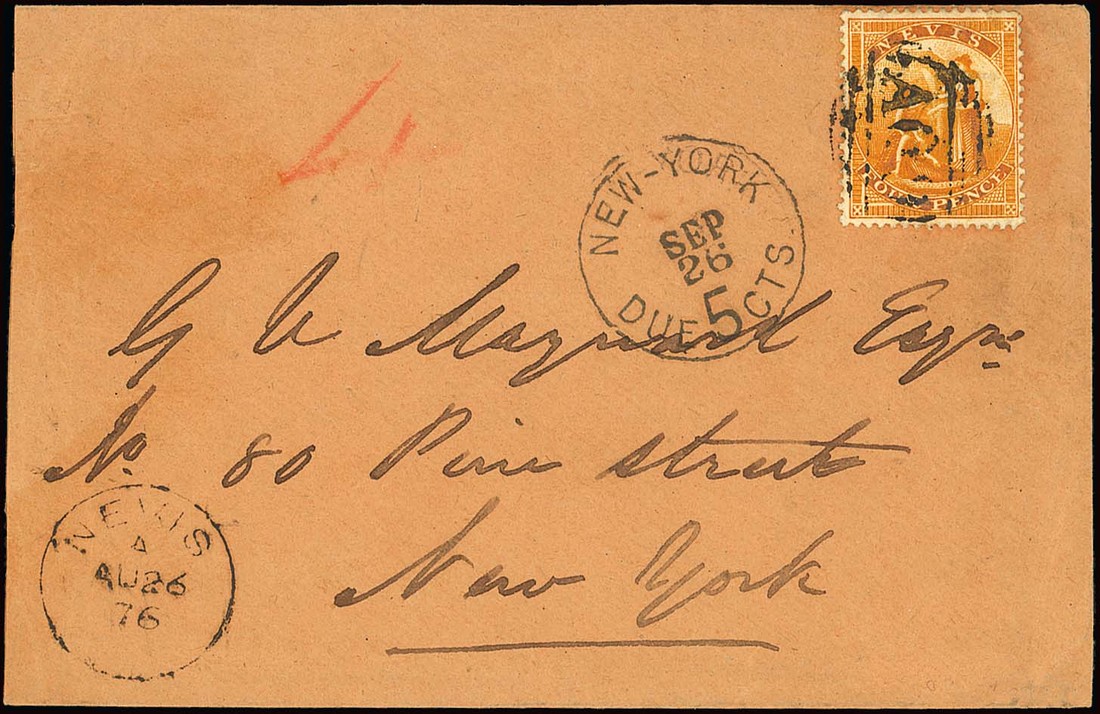 NEVIS
FOUR PENCE
A09
4
NEW-YORK
SEP
26
DUE 5 CTS
G W Maynard Esqre
No 80 Pine street
New York
NEVIS
A
AU 26
76